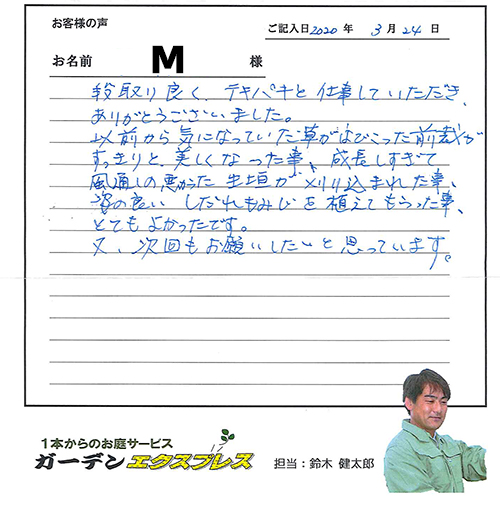 お客様の声
ご記入日 2020 年 3 月 24 日
お名前 M 様
段取り良く、テキパキと仕事していただき、
ありがとうございました。
以前から気になっていた草がはびこった前栽が
すっきりと美しくなった事、成長しすぎて
風通しの悪かった生垣が刈り込まれた事、
姿の良いしだれもみじを植えてもらった事、
とてもよかったです。
又、次回もお願いしたいと思っています。
1本からのお庭サービス
ガーデンエクスプレス
担当：鈴木 健太郎